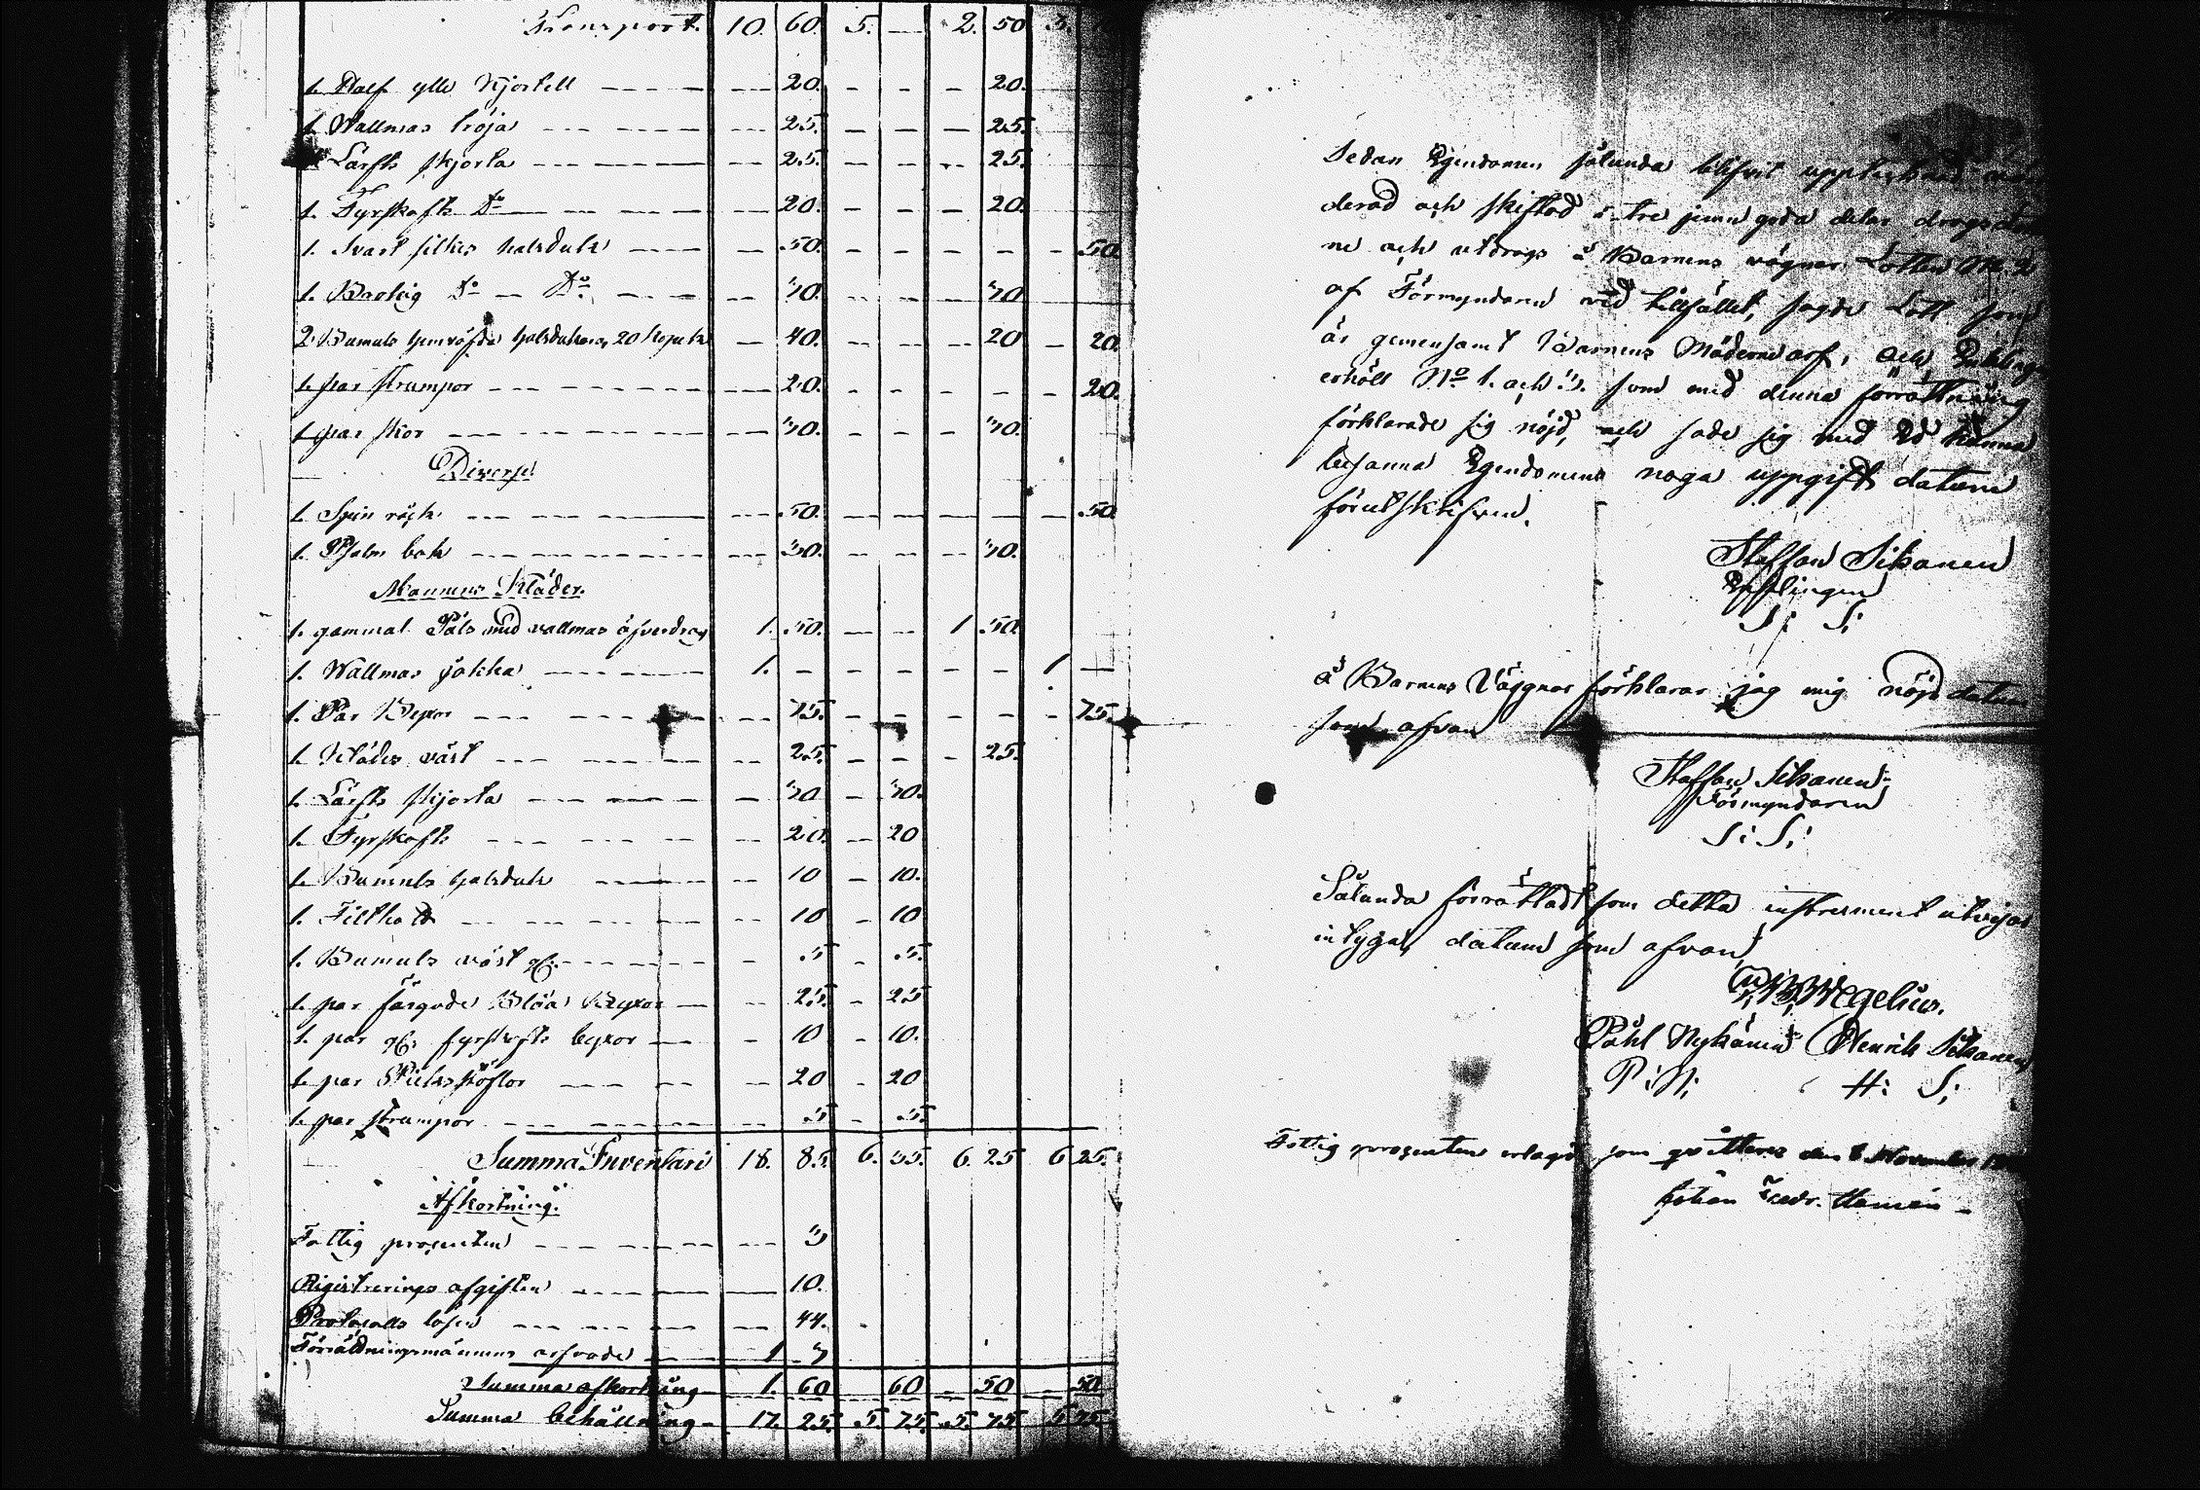 Transport. 10. 60. 5. — 2. 50 3.
1. Half ylle Kjortell — 20. — — — 20.
1. Wallmas tröja — 25. — — — 25.
1 Lärfts skjorta — 25. — — — 25.
1. Fyrskafts Do — 20. — — — 20.
1. Svart silkes halsduk — 50. — — — — — 50
1. Brokig Do — Do. — 30. — — — 30
2 Bumuls hemväfda halsdukar, 20 kopek — 40. — — — 20 — 20
1. par strumpor — 20. — — — — — 20.
1. par skor — 30. — — — 30.
Diverse
1. Spin råck — 50. — — — — — 50
1. Psalm bok — 30. — — — 30.
Mannens Kläder.
1. gammal Päls med vallmas öfverdrag 1. 50. — — 1 50
1. Wallmas jakka 1. — — — — — 1 —
1. Par Byxor — 75. — — — — — 75.
1. Klädes väst — 25. — — — 25.
1. Lärfts skjorta — 30 — 30.
1. Fyrskafts — 20. — 20
1. Bumuls halsduk — 10 — 10.
1. Filthatt — 10 — 10
1. Bumuls väst — 5 — 5.
1. par färgade Blåa Byxor — 25. — 25
1. par fyrskafts byxor — 10 — 10.
1. par Pieksstöflor — 20 — 20
1. par strumpor — 5 — 5.
Summa Inventari 18. 85. 6. 35. 6. 25 6 25.
Afkortning.
Fattig prosenten — 3
Registrerings afgiften — 10.
Protocolls lösen — 44.
Förrättningsmännens arfvode 1 3
Summa afkortning 1. 60 60 — 50 — 50
Summa behållning 17. 25. 5. 75. 5. 75 5 75
Sedan Egendomen sålunda blifvit upptecknad
derad och skiftad i tre jemn goda delar drogs
ne och utdrogs å Barnens vägnar Lotten No 2
af Förmyndaren vid tillfället, sagde Lott som
är gemensamt Barnens Möderne arf, och Enklingen
erhöll No 1. och 3. som med denna förrättning
förklarade sig nöjd, och sade sig med Ed kunna
besanna Egendomens noga uppgift datum
förutskrifven.
Staffan Sikanen
Enklingen
S: S:
å Barnens Vägnar förklarar jag mig nöjd datum
som ofvan
Staffan Sikanen
Förmyndaren
S: S:
Sålunda förrättadt som detta instrument utvisar
intyga, datum som ofvan
Wegelius.
Påhl Nykänen Henrik Sikanen
P: N: H: S:
Fattig prosenten erlagd som qvitteras den 8 November
Johan Fredr.